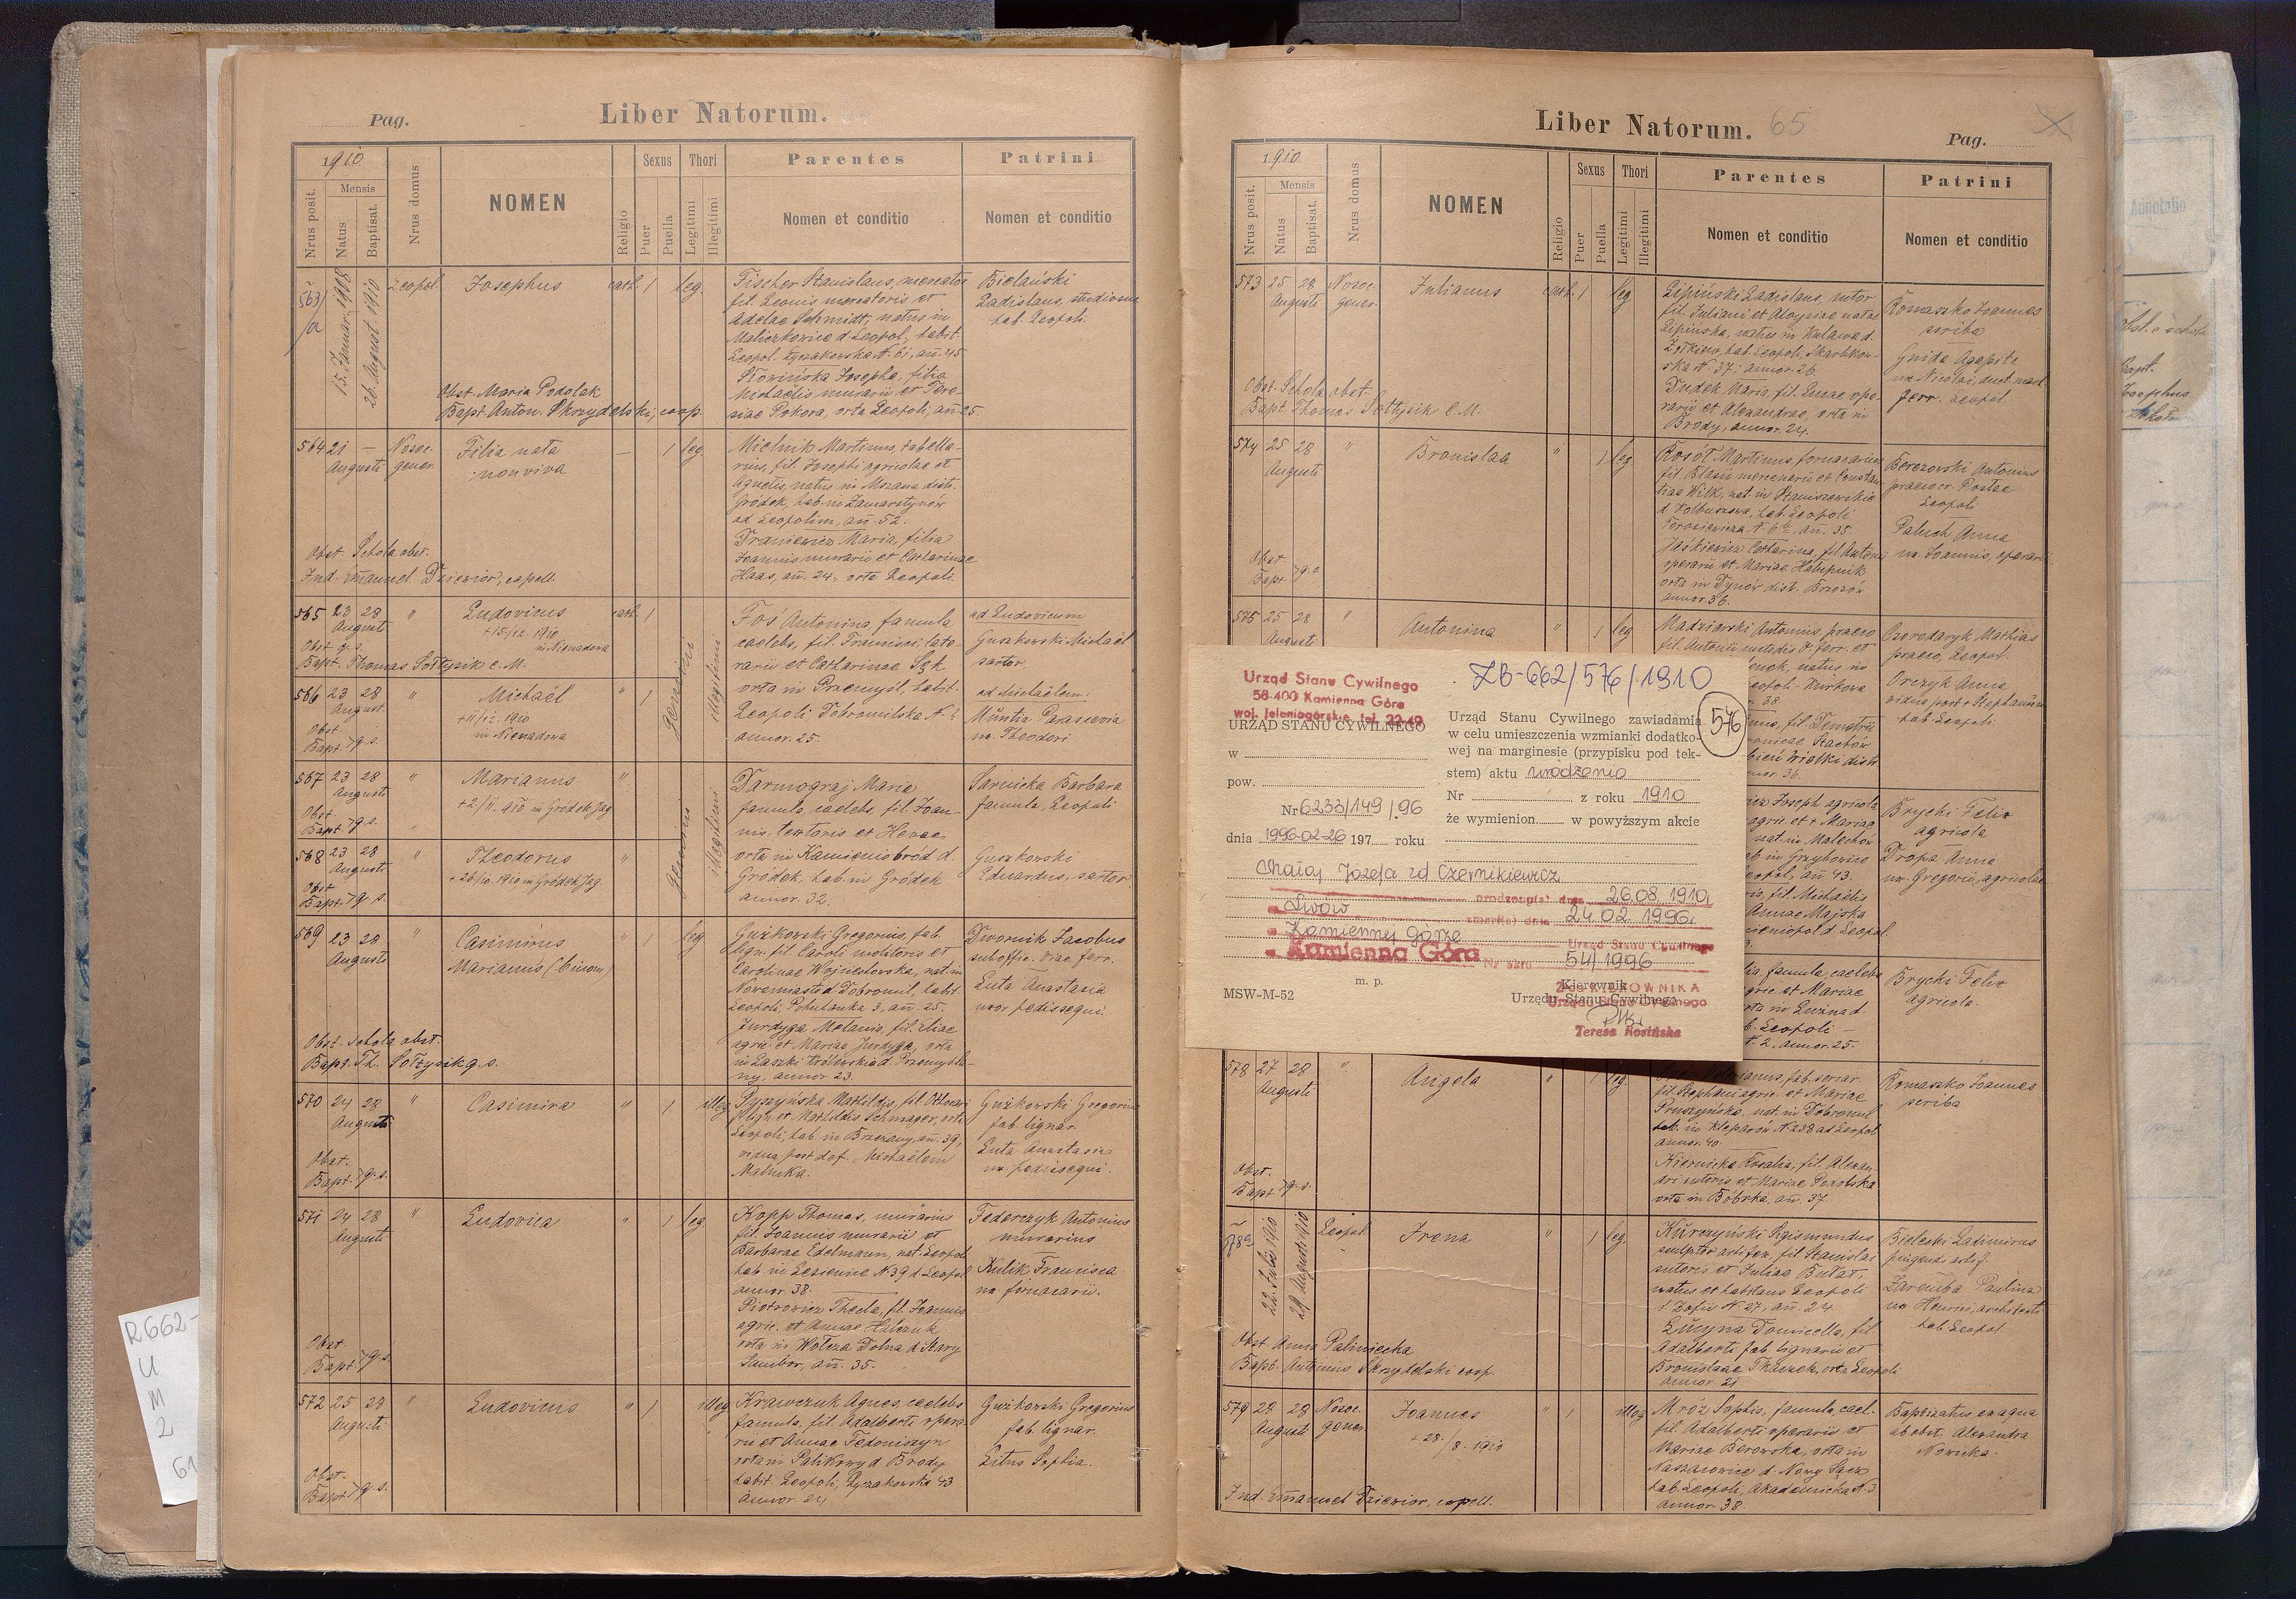 Pag.
Liber Natorum.
1910
Nrus posit.
Mensis
Natus
Baptisat.
Nrus domus
NOMEN
Religio
Sexus
Puer
Puella
Thori
Legitimi
Illegitimi
Parentes
Nomen et conditio
Patrini
Nomen et conditio
563/a
15. Januar. 1908
26. August 1910
Leopol.
Josephus
cath. 1 leg.
Fischer Stanislaus, mercator
fil. Leonis mercatoris et
Adelae Schmidt, natus in
d. Leopol, habit.
Leopol. Łyczakowska N. 61, an. 45
Słowińska Josepha, filia
Michaëlis murarii et There-
siae Pokora, orta Leopoli, an. 25.
Bielański
Ladislaus, studiosus
hab. Leopoli.
Obst. Maria Podolak
Bapt. Anton. Skrzydelski, coop.
564 21 —
Augusti
Nosoc.
gener.
Filia nata
non viva
— 1 leg.
Michnik Martinus, tabella-
rius, fil. Josephi agricolae et
Agnetis, natus in Mszana distr.
Gródek, hab. in Zamarstynów
ad Leopolim, an. 52.
Draniewicz Maria, filia
Joannis murarii et Catharinae
Haas, an. 24, orta Leopoli.
Obst. Schola obst.
Ind. Emanuel Dziewior, capell.
565 23 28
Augusti
"
Ludovicus
+15/12. 1910
in Nienadowa
cath. 1
Obst. q. s.
Bapt. Thomas Sołtysik c. M.
Foś Antonina, famula
caelebs, fil. Francisci, late-
rarii et Catharinae Sęk
orta in Przemyśl, habit.
Leopoli Dobromilska N.
annor. 25.
gemini
illegitimi
ad Ludovicum
Guszkowski Michaël
sartor
566 23 28
August.
"
Michaël
+11/12. 1910
in Nienadowa
" 1
Obst.
Bapt. q. s.
ad Michaëlem:
Muntia Parascevia
ux. Theodori
567 23 28
Augusti
"
Marianus
+2/11. 910 in Gródek Jag
"
Obst.
Bapt. q. s.
Darmograj Maria
famula, caelebs, fil. Joan-
nis textoris et Hevae
orta in Kamieniobród d.
Gródek, hab. in Gródek
annor. 32.
gemini
illegitimi
Sarnicka Barbara
famula, Leopoli
568 23 28
Augusti
"
Theodorus
+26/10. 1910 in Gródek Jag.
"
Obst
Bapt. q. s.
Guszkowski
Eduardus, sartor
569 23 28
Augusti
"
Casimirus
Marianus (binom)
" 1 leg
Guzkowski Gregorius, fab.
lign. fil. Caroli molitoris et
Carolinae Wojciechowska, nat. in
Nowemiasto d Dobromil, habit.
Leopoli, Pohulanka 3, an. 25.
Jurdyga Melania, fil. Eliae
agric. et Mariae Jurdyga, orta
in Łaszki Królewskie d. Przemyśla-
ny, annor. 23.
Dwornik Jacobus
suboffic. viae ferr.
Luta Anastasia
uxor pedissequi.
Obst. Schola obst.
Bapt. Th. Sołtysik q. s.
570 24 28
Augusti
"
Casimira
" 1 illeg
Syszyńska Mathildis, fil. Othmari
lign. et Mathildis Schnager, orta
Leopoli, hab. in Brzezany, an. 39,
vidua post def. Michaëlem
Malinka.
Guzkowski Gregorius
fab. lignar.
Luta Anastasia
ux. pedissequi.
Obst.
Bapt. q. s.
571 24 28
Augusti
"
Ludovica
" 1 leg
Kopp Thomas, murarius
fil. Joannis murarii et
Barbarae Edelmann, nat. Leopoli
hab. in Lesienice N 39 d. Leopol
annor. 38.
Piotrowicz Thecla, fil. Joannis
agric. et Annae Halczuk
orta in Wołcza Dolna d. Stary
Sambor, an. 35.
Federczyk Antonius
murarius
Kulik Francisca
ux. fornacarii.
Obst
Bapt. q. s.
572 25 28
Augusti
"
Ludovicus
" 1 illeg
Krawczuk Agnes, caelebs
famula, fil. Adalberti opera-
rii et Annae Fedoniszyn
orta in Palikrowy d Brody
habit. Leopoli, Łyczakowska 43
annor. 24
Guzkowski Gregorius
fab. lignar.
Litus Sophia.
Obst.
Bapt. q. s.
R662-
U
M
2
61
Liber Natorum. 65
Pag.
1910
Nrus posit.
Mensis
Natus
Baptisat.
Nrus domus
NOMEN
Religio
Sexus
Puer
Puella
Thori
Legitimi
Illegitimi
Parentes
Nomen et conditio
Patrini
Nomen et conditio
573 25 28
Augusti
Nosoc.
gener.
Julianus
cath. 1 leg.
Lipiński Ladislaus, sutor
fil. Juliani et Aloysiae natae
Lipińska, natus in Kulawa d.
Żółkiew, hab. Leopoli, Skarbkow-
ska N. 37; annor. 26.
Dudek Maria, fil. Lucae ope-
rarii et Alexandrae, orta in
Brody, annor. 24.
Romaszko Joannes
scriba
Guida Agapita
ux. Nicolai, cust. mach.
ferr. Leopol
Obst. Schola obst.
Bapt. Thomas Sołtysik C. M.
574 25 28
Augusti
"
Bronislaa
" 1 leg
Kosół Martinus, fornacarius
fil. Blasii mercenarii et Constan-
tiae Wilk, nat. in Staniszewskie
d. Kolbuszowa, hab. Leopoli
Torosiewicza N 6 b, an. 35.
Jaśkiewicz Catharina, fil. Antonii
operarii et Mariae Hałupnik
orta in Dynów distr. Brzozów
annor. 36.
Berezowski Antonius
praeco cr. Postae
Leopoli
Paluch Anna
ux. Joannis, operarii
Obst
Bapt. q. s.
575 25 28
Augusti
"
Antonina
" 1 leg
Madziarski Antonius, praeco
fil. Antonii custodis v. ferr. et
natus in
Leopoli - Kurkowa
38
fil. Demetrii
Stachów
Wielki distr
annor. 36.
Czerodaryk Mathias
praeco, Leopol.
Orczyk Anna
vidua post + Stephanum
hab. Leopoli.
Urząd Stanu Cywilnego
58-400 Kamienna Góra
woj. jeleniogórskie tel. 22-49
URZĄD STANU CYWILNEGO
w
pow.
Nr 6233/149/96
dnia 1996-02-26 197 roku
ZB-662/576/1910
576
Urząd Stanu Cywilnego zawiadamia
w celu umieszczenia wzmianki dodatko-
wej na marginesie (przypisku pod tek-
stem) aktu urodzenia
Nr z roku 1910
że wymienion w powyższym akcie
Chałaj Józefa zd Czernikiewicz
urodzony(a) dnia 26.08 1910,
Lwów zmarł(a) dnia 24 02 1996r.
Kamiennej Górze Urząd Stanu Cywilnego
Kamienna Góra Nr aktu 54/1996
m. p.
MSW-M-52
Kierownik
Urzędu Stanu Cywilnego
Z-CA KIEROWNIKA
Urzędu Stanu Cywilnego
Teresa Kosińska
Joseph agricola
agric et + Mariae
nat. in Malechów
hab in Grzybowice
Leopol, an 43.
fil. Michaëlis
Annae Majska
d. Leopol.
Brycki Felix
agricola
Dropa Anna
ux. Gregorii, agricolae
famula, caelebs
agric et Mariae
orta in Łuzna d.
Leopoli —
N. 2, annor. 25.
Brycki Felix
agricola.
578 27 28
Augusti
"
Angela
" 1 leg.
fab. serrar.
fil. Stephani agric. et Mariae
Pruszyńska, nat. in Dobromil
hab. in Kleparów N 258 ad Leopol
annor. 40.
Kiernicka Rosalia, fil. Alexan-
dri sutoris et Mariae Pozorska
orta in Bóbrka, an. 37
Romaszko Joannes
scriba
Obst.
Bapt. q. s.
578a
22. Julii 1910
29. Augusti 1910
Leopol
Irena
" 1 leg.
Kurczyński Sigismundus
sculptor artifex, fil. Stanislai
sutoris et Juliae Butat,
natus et habitans Leopoli
s. Zofii N. 27, an. 24.
Łucyna Domicella, fil.
Adalberti fab. lignarii et
Bronislaae Tkaczek, orta Leopoli
annor. 21
Bielecki Ladimirus
pingend. artif.
Zaremba Paulina
ux. Henrici, architecti
hab. Leopol.
Obst. Anna Paliwiecka
Bapt. Antonius Skrzydelski coop.
579 28 28
Augusti
Nosoc.
gener.
Joannes
+ 28./8. 1910
" 1 illeg
Mróz Sophia, famula, cael.
fil. Adalberti operarii et
Mariae Berowska, orta in
Naszacowice d. Nowy Sącz
hab. Leopoli, Akademicka N. 3
annor. 38
Baptizatus ex aqua
ab obst. Alexandra
Nowicka.
Ind. Emanuel Dziewior, capell.
Adnotatio
Obst. e schola
Bapt.
Josephus